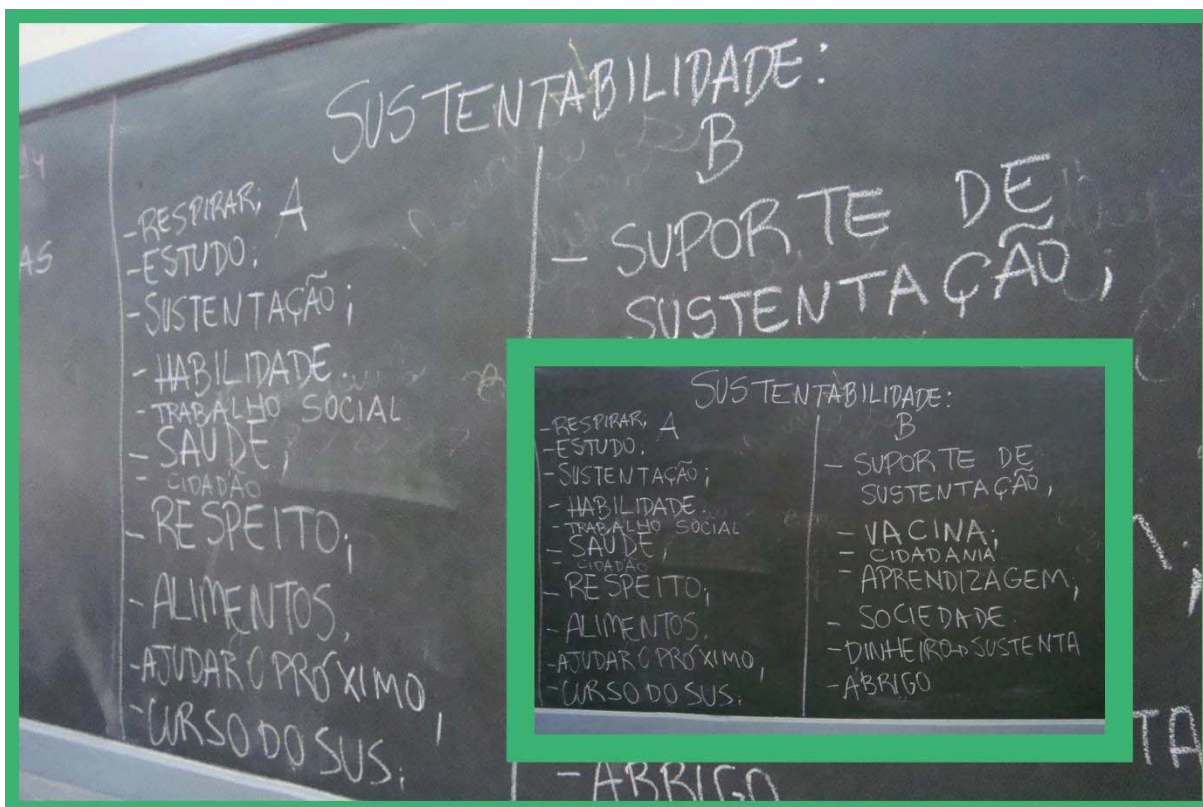 SUSTENTABILIDADE:
A
-RESPIRAR;
-ESTUDO.
-SUSTENTAÇÃO;
-HABILIDADE.
-TRABALHO SOCIAL
-SAÚDE;
-CIDADÃO
-RESPEITO;
-ALIMENTOS.
-AJUDAR O PRÓXIMO,
-CURSO DO SUS.
B
-SUPORTE DE
SUSTENTAÇÃO;
-ABRIGO
TA
AS
SUSTENTABILIDADE:
A
-RESPIRAR;
-ESTUDO.
-SUSTENTAÇÃO;
-HABILIDADE.
-TRABALHO SOCIAL
-SAÚDE;
-CIDADÃO
-RESPEITO;
-ALIMENTOS.
-AJUDAR O PRÓXIMO,
-CURSO DO SUS.
B
-SUPORTE DE
SUSTENTAÇÃO,
-VACINA;
-CIDADANIA
-APRENDIZAGEM;
-SOCIEDADE.
-DINHEIRO→SUSTENTA
-ABRIGO